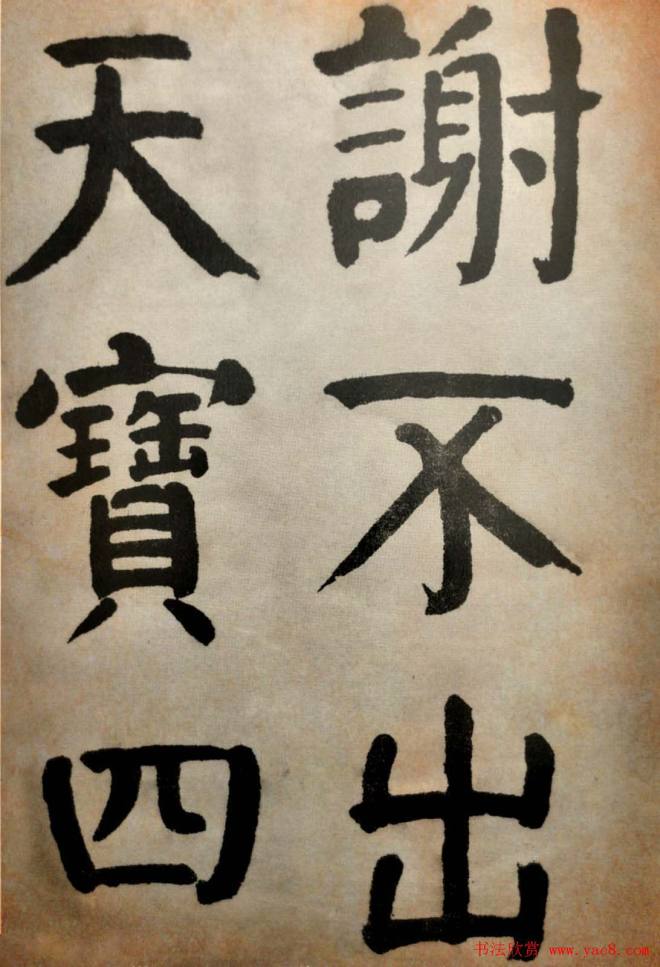 謝不出
天寶四
书法欣赏 www.yac8.com